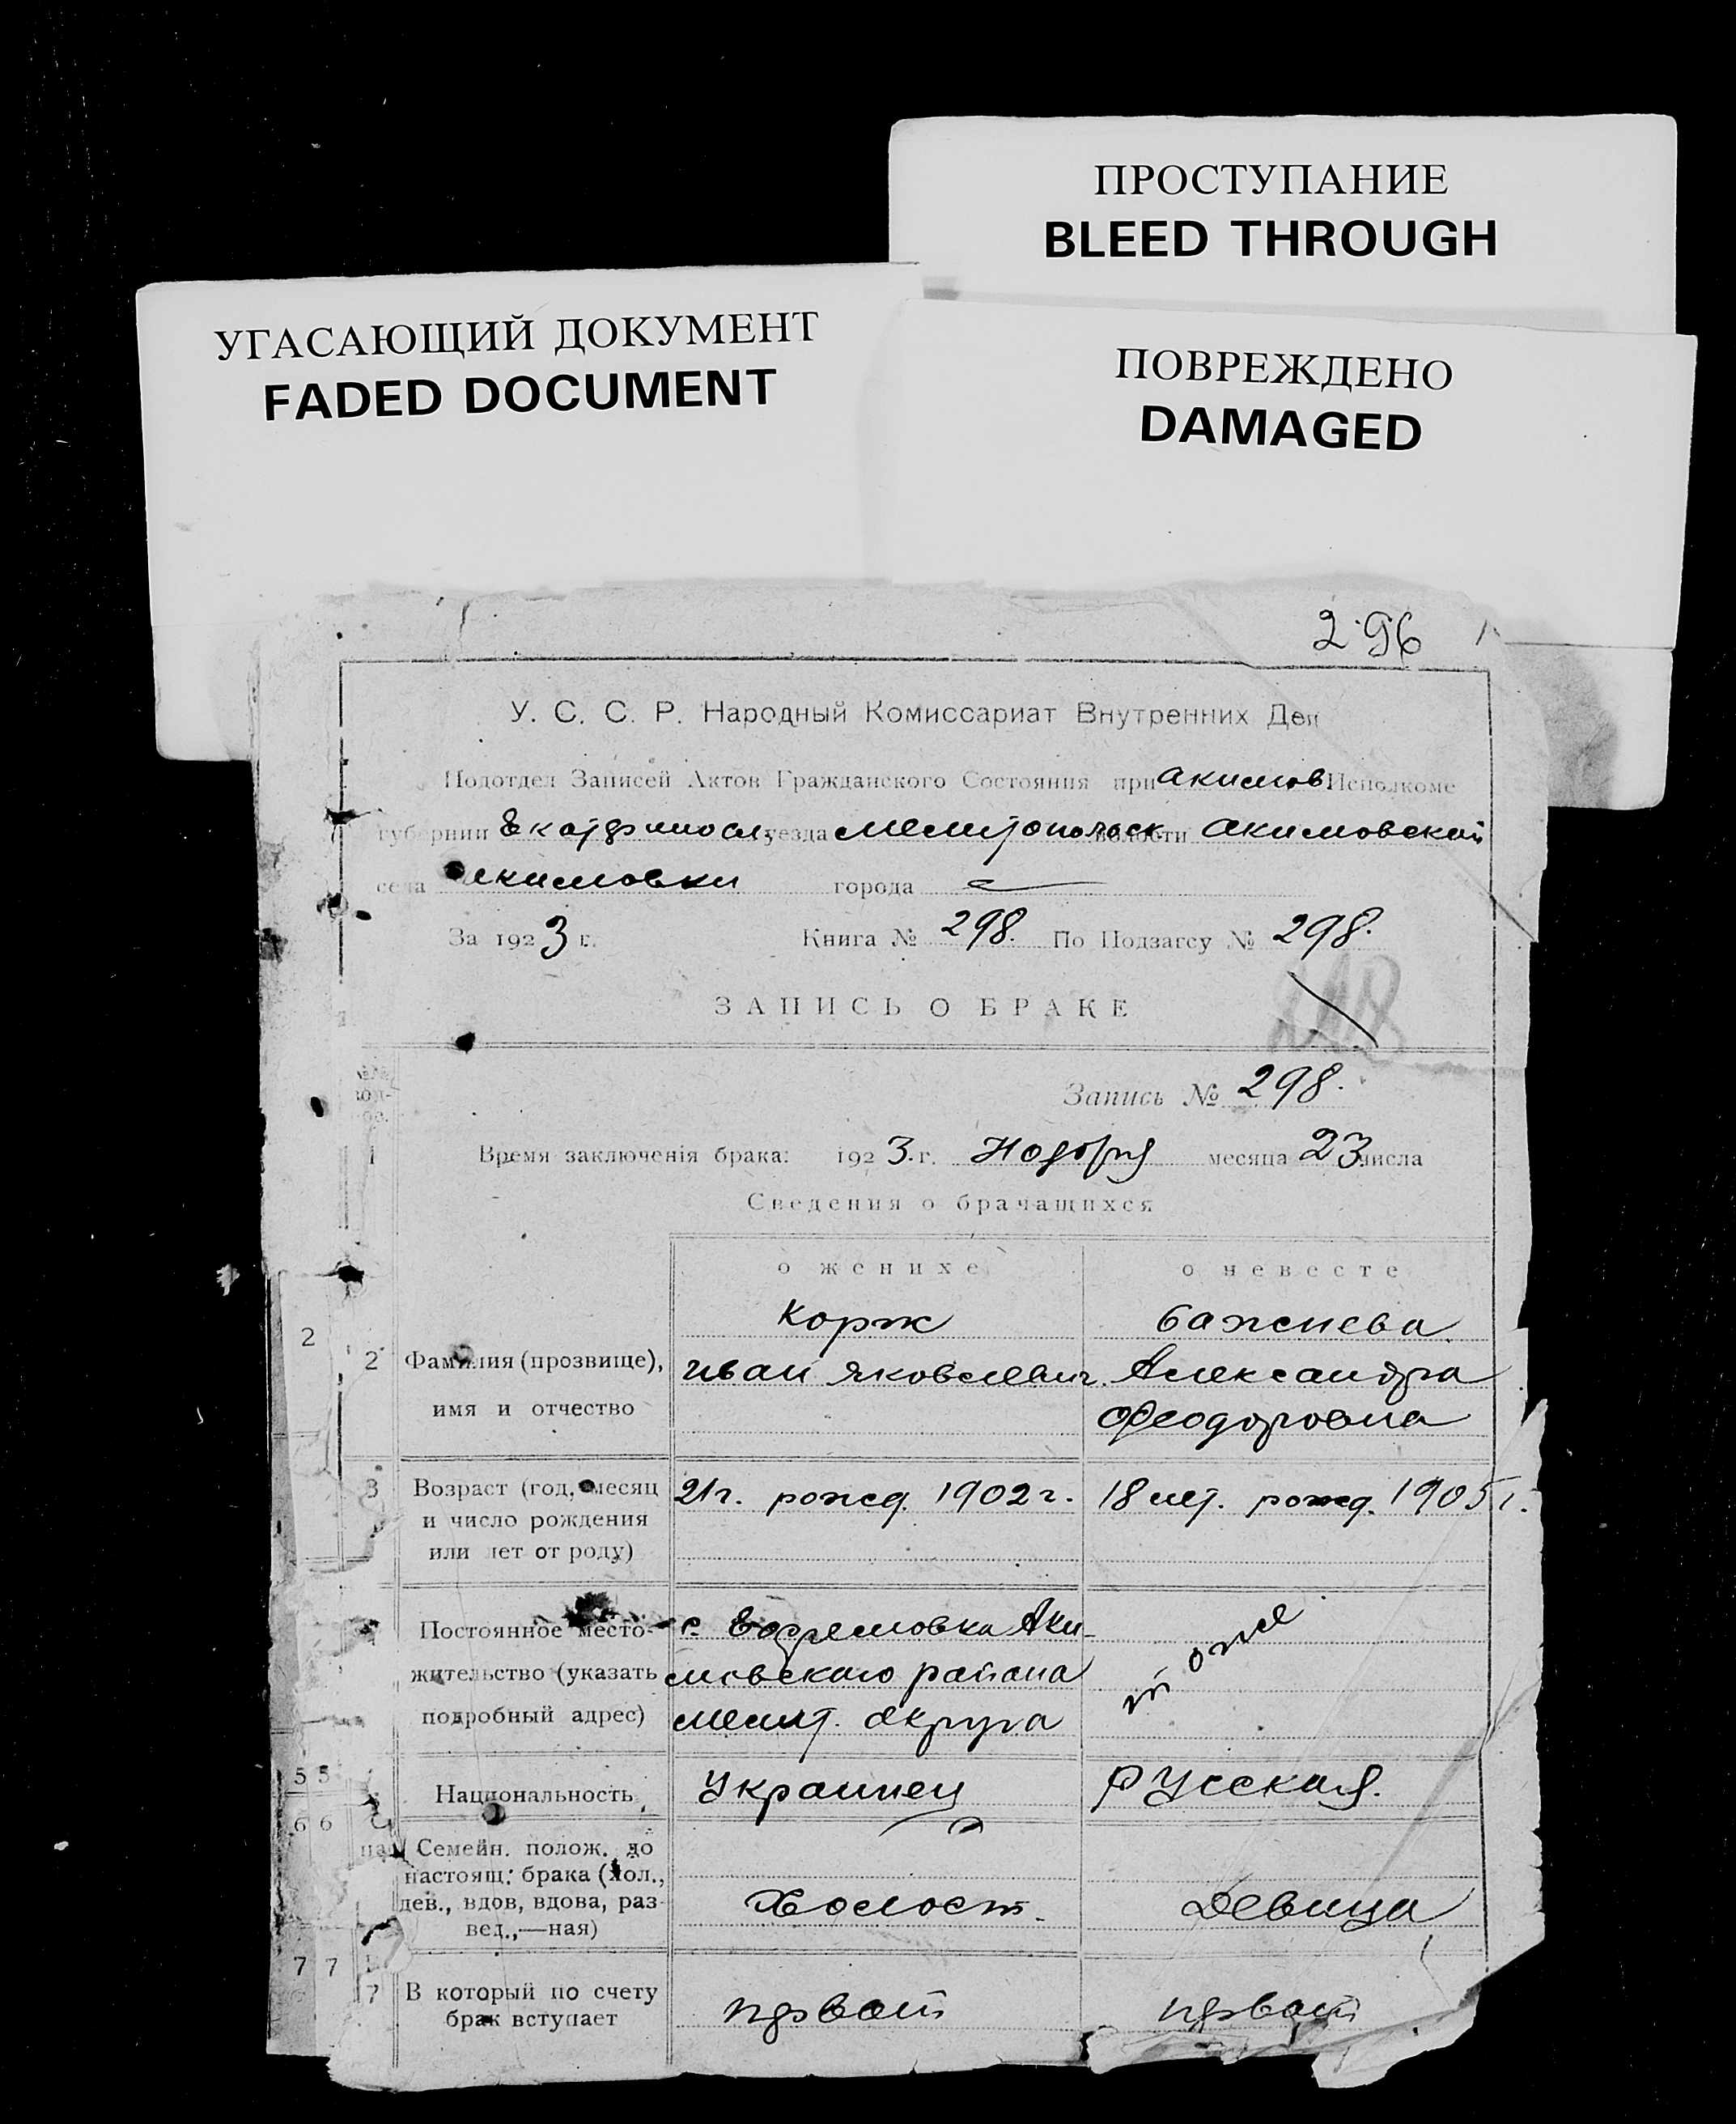 ПРОСТУПАНИЕ
BLEED THROUGH
УГАСАЮЩИЙ ДОКУМЕНТ
FADED DOCUMENT
ПОВРЕЖДЕНО
DAMAGED
296
У. С. С. Р. Народный Комиссариат Внутренних Дел
Подотдел Записей Актов Гражданского Состояния при Акимов. Исполкоме
губернии Екатериносл. уезда Мелитопольск. волости Акимовской
села Акимовки города
За 1923 г. Книга № 298. По Подзагсу № 298.
ЗАПИСЬ О БРАКЕ
Запись № 298.
1 Время заключенія брака: 1923 г. Ноября месяца 23 числа
Сведения о брачащихся
о женихе о невесте
Корж Бажнева
2 2 Фамилия (прозвище), Иван Яковлевич. Александра
имя и отчество Феодоровна
3 Возраст (год, месяц 21 г. рожд. 1902 г. 18 лет. рожд. 1905 г.
и число рождения
или лет от роду)
Постоянное место- с. Ефремовка Аки-
жительство (указать мовского района то же
подробный адрес) Мелит. округа
5 5 Национальность Украинец Русская.
6 6 Семейн. полож. до
настоящ. брака (хол.,
дев., вдов, вдова, раз- Холост. Девица
вед.,—ная)
7 7 7 В который по счету первый первый
брак вступает